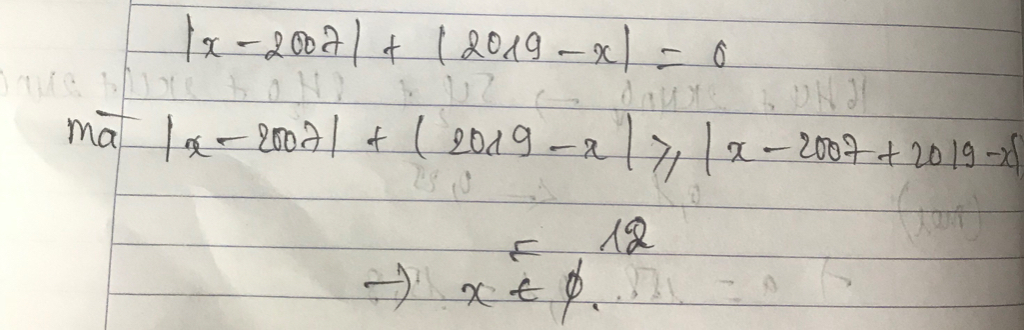 |x - 2007| + |2019 - x| = 0
mà |x - 2007| + |2019 - x| ⩾ |x - 2007 + 2019 - x|
= 12
→ x ∈ ∅.